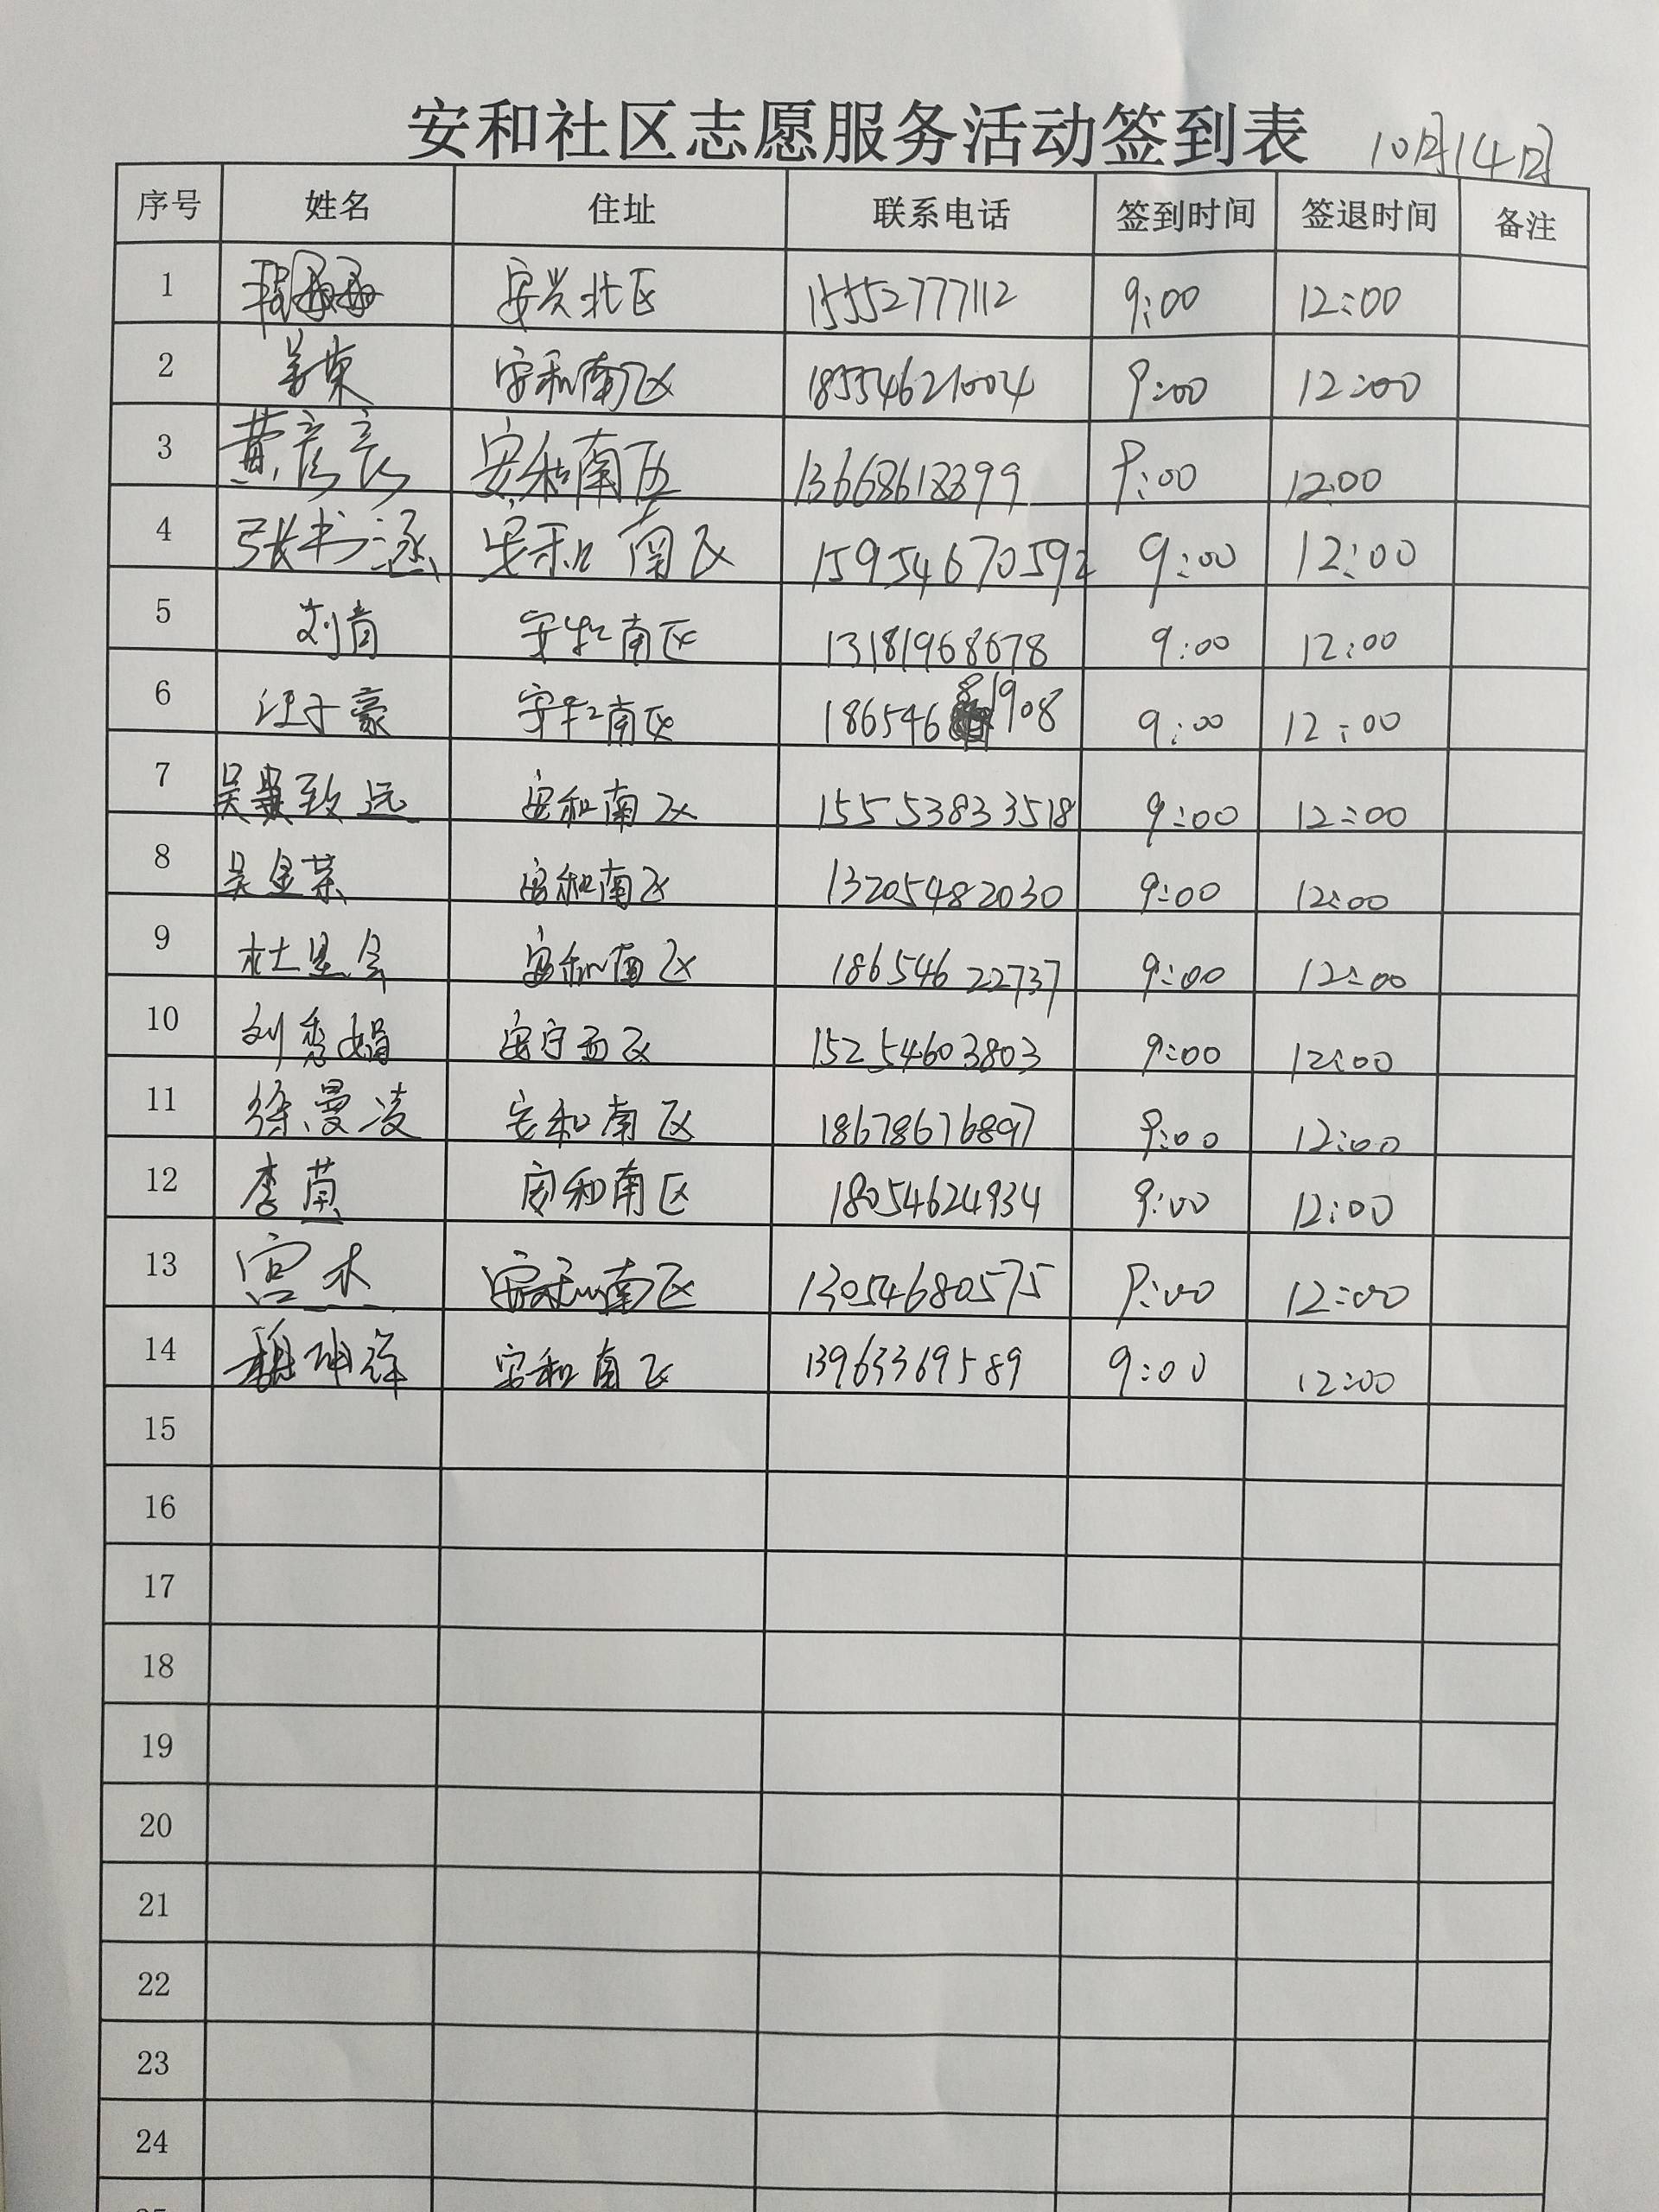 安和社区志愿服务活动签到表 10月14日
序号 姓名 住址 联系电话 签到时间 签退时间 备注
1 安兴北区 15552777112 9:00 12:00
2 安和南区 18554621004 9:00 12:00
3 黄彦彦 安和南区 13668618399 9:00 12:00
4 张书涵 安和南区 15954670592 9:00 12:00
5 刘青 安和南区 13181968678 9:00 12:00
6 汪子豪 安和南区 18654681908 9:00 12:00
7 吴致远 安和南区 15553833518 9:00 12:00
8 吴金荣 安和南区 13205482030 9:00 12:00
9 杜星会 安和南区 18654622737 9:00 12:00
10 刘秀娟 安宁西区 15254603803 9:00 12:00
11 徐曼凌 安和南区 18678676897 9:00 12:00
12 李茵 安和南区 18054624934 9:00 12:00
13 宫木 安和南区 13054680575 9:00 12:00
14 魏坤祥 安和南区 13963369589 9:00 12:00
15
16
17
18
19
20
21
22
23
24